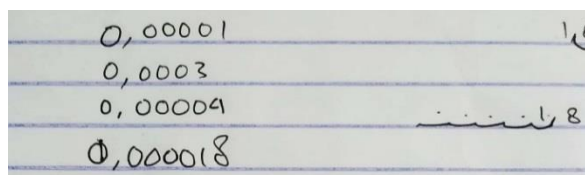 0,00001
0,0003
0,00004
0,000018 1,8